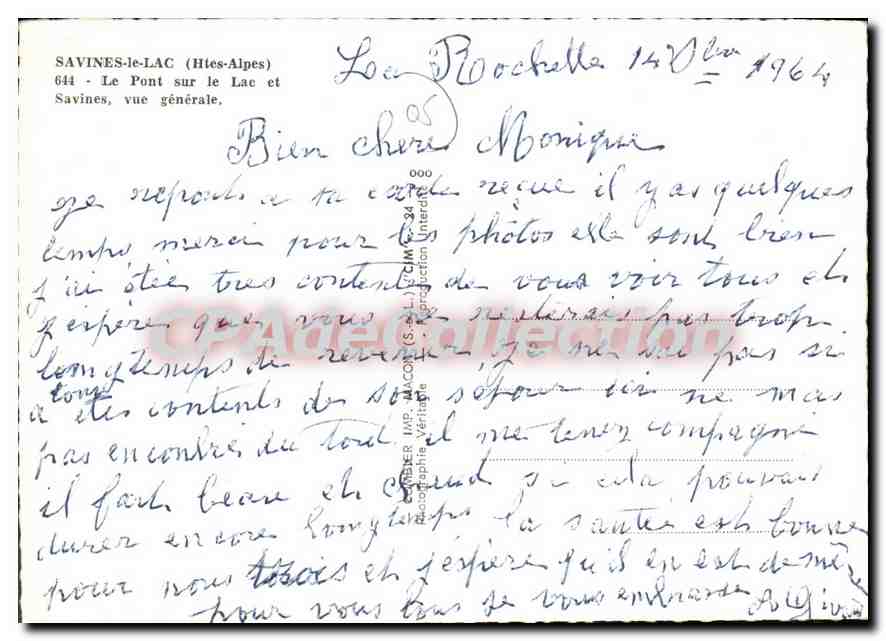 SAVINES-le-LAC (Htes-Alpes)
644 - Le Pont sur le Lac et
Savines, vue générale.
La Rochelle 14 1964
05
Bien chere Monique
Je reponds a ta carde reçue il y as quelques
temps merci pour les photos elle sont bien
j'ai ôtée tres contente de vous voir tous et
j'espère que vous ne resterais pas trop
longtemps de revenir, je ne sai pas si
tons
a etes contents de son séjour ici ne mas
pas encontré du tord il me tenez compagnie
il fait beau et chaud si cela pouvait
durer encore longtemps la santée est bonne
pour nous trois et j'espère qu'il en est de même
pour vous tous je vous embrasse
COMBIER IMP. MACON (S.-&-L.) "CIM"
Photographie Véritable - Reproduction interdite
CPAdeCollection